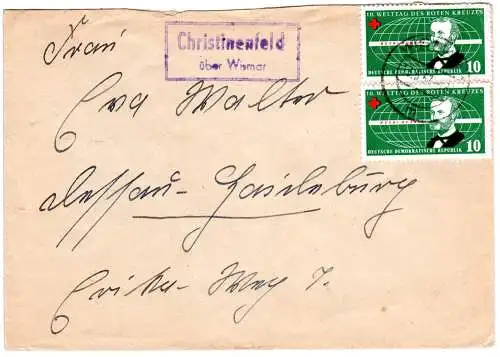 Christinenfeld
über Wismar
10. WELTTAG DES ROTEN KREUZES
DEUTSCHE DEMOKRATISCHE REPUBLIK 10
10. WELTTAG DES ROTEN KREUZES
DEUTSCHE DEMOKRATISCHE REPUBLIK 10
Frau
Eva Walter
Dessau-Haideburg
Erika-Weg 7.